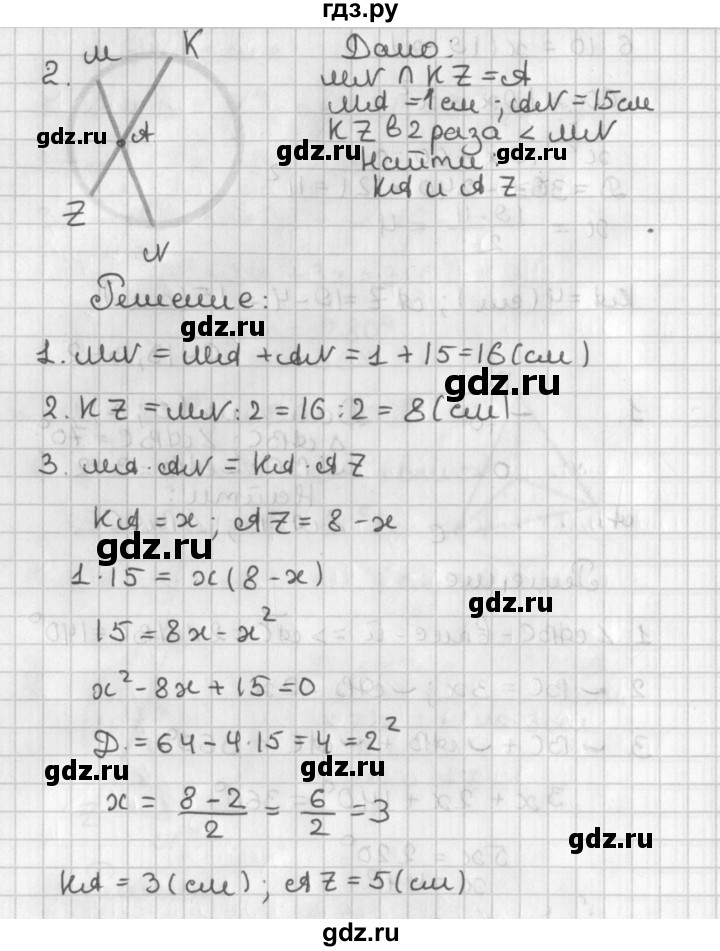 гдз.ру
M K
2.
A
Z
N
Дано:
MN ∩ KZ = A
MA = 1 см; AN = 15 см
KZ в 2 раза < MN
Найти:
KA и AZ
gdz.ru gdz.ru gdz.ru
Решение:
gdz.ru
1. MN = MA + AN = 1 + 15 = 16 (см)
gdz.ru
2. KZ = MN : 2 = 16 : 2 = 8 (см)
gdz.ru
3. MA · AN = KA · AZ
KA = x; AZ = 8 - x
gdz.ru
1 · 15 = x(8 - x)
gdz.ru
15 = 8x - x²
x² - 8x + 15 = 0
Д. = 64 - 4 · 15 = 4 = 2²
gdz.ru gdz.ru
x = (8 - 2)/2 = 6/2 = 3
gdz.ru
KA = 3 (см); AZ = 5 (см)
gdz.ru